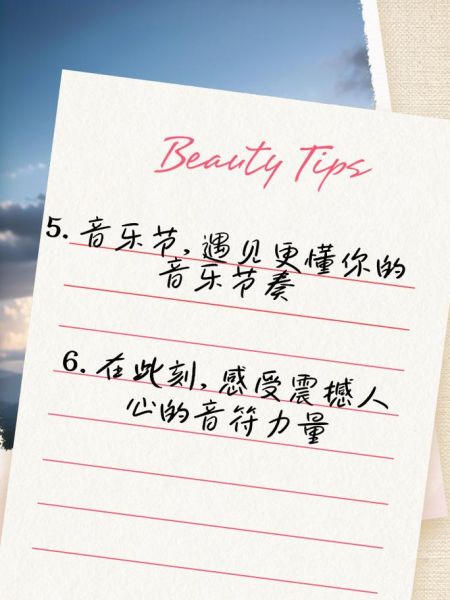 Beauty Tips
5. 音乐节,遇见更懂你的
音乐节奏
6. 在此刻,感受震撼人
心的音符力量